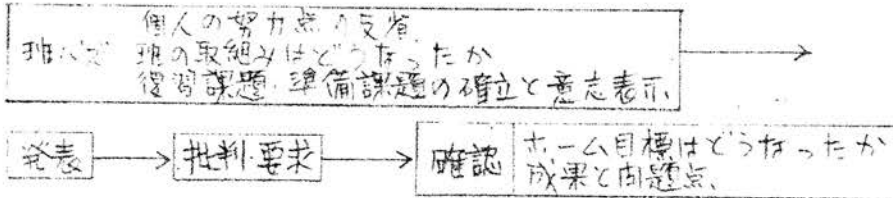 個人の努力点の反省
班バズ 班の取組みはどうなったか
復習課題・準備課題の確立と意志表示
発表 → 批判・要求 → 確認 ホーム目標はどうなったか
成果と問題点